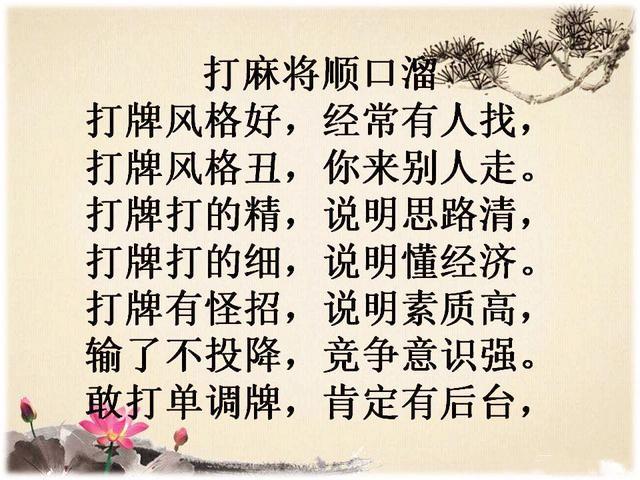 打麻将顺口溜
打牌风格好，经常有人找，
打牌风格丑，你来别人走。
打牌打的精，说明思路清，
打牌打的细，说明懂经济。
打牌有怪招，说明素质高，
输了不投降，竞争意识强。
敢打单调牌，肯定有后台，